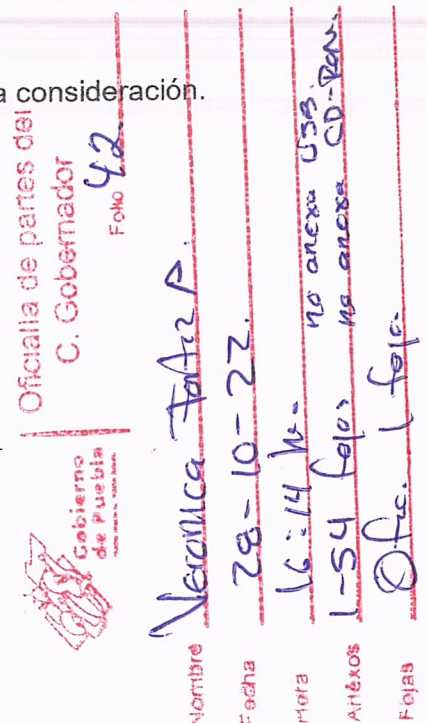 a consideración.
Gobierno
de Puebla
Oficialía de partes del
C. Gobernador
Folio 42
Nombre Veronica P.
Fecha 28-10-22.
Hora 16:14 hr. no anexa USB.
Anexos 1-54 fojas no anexa CD-ROM.
Fojas Ofic. 1 foja.